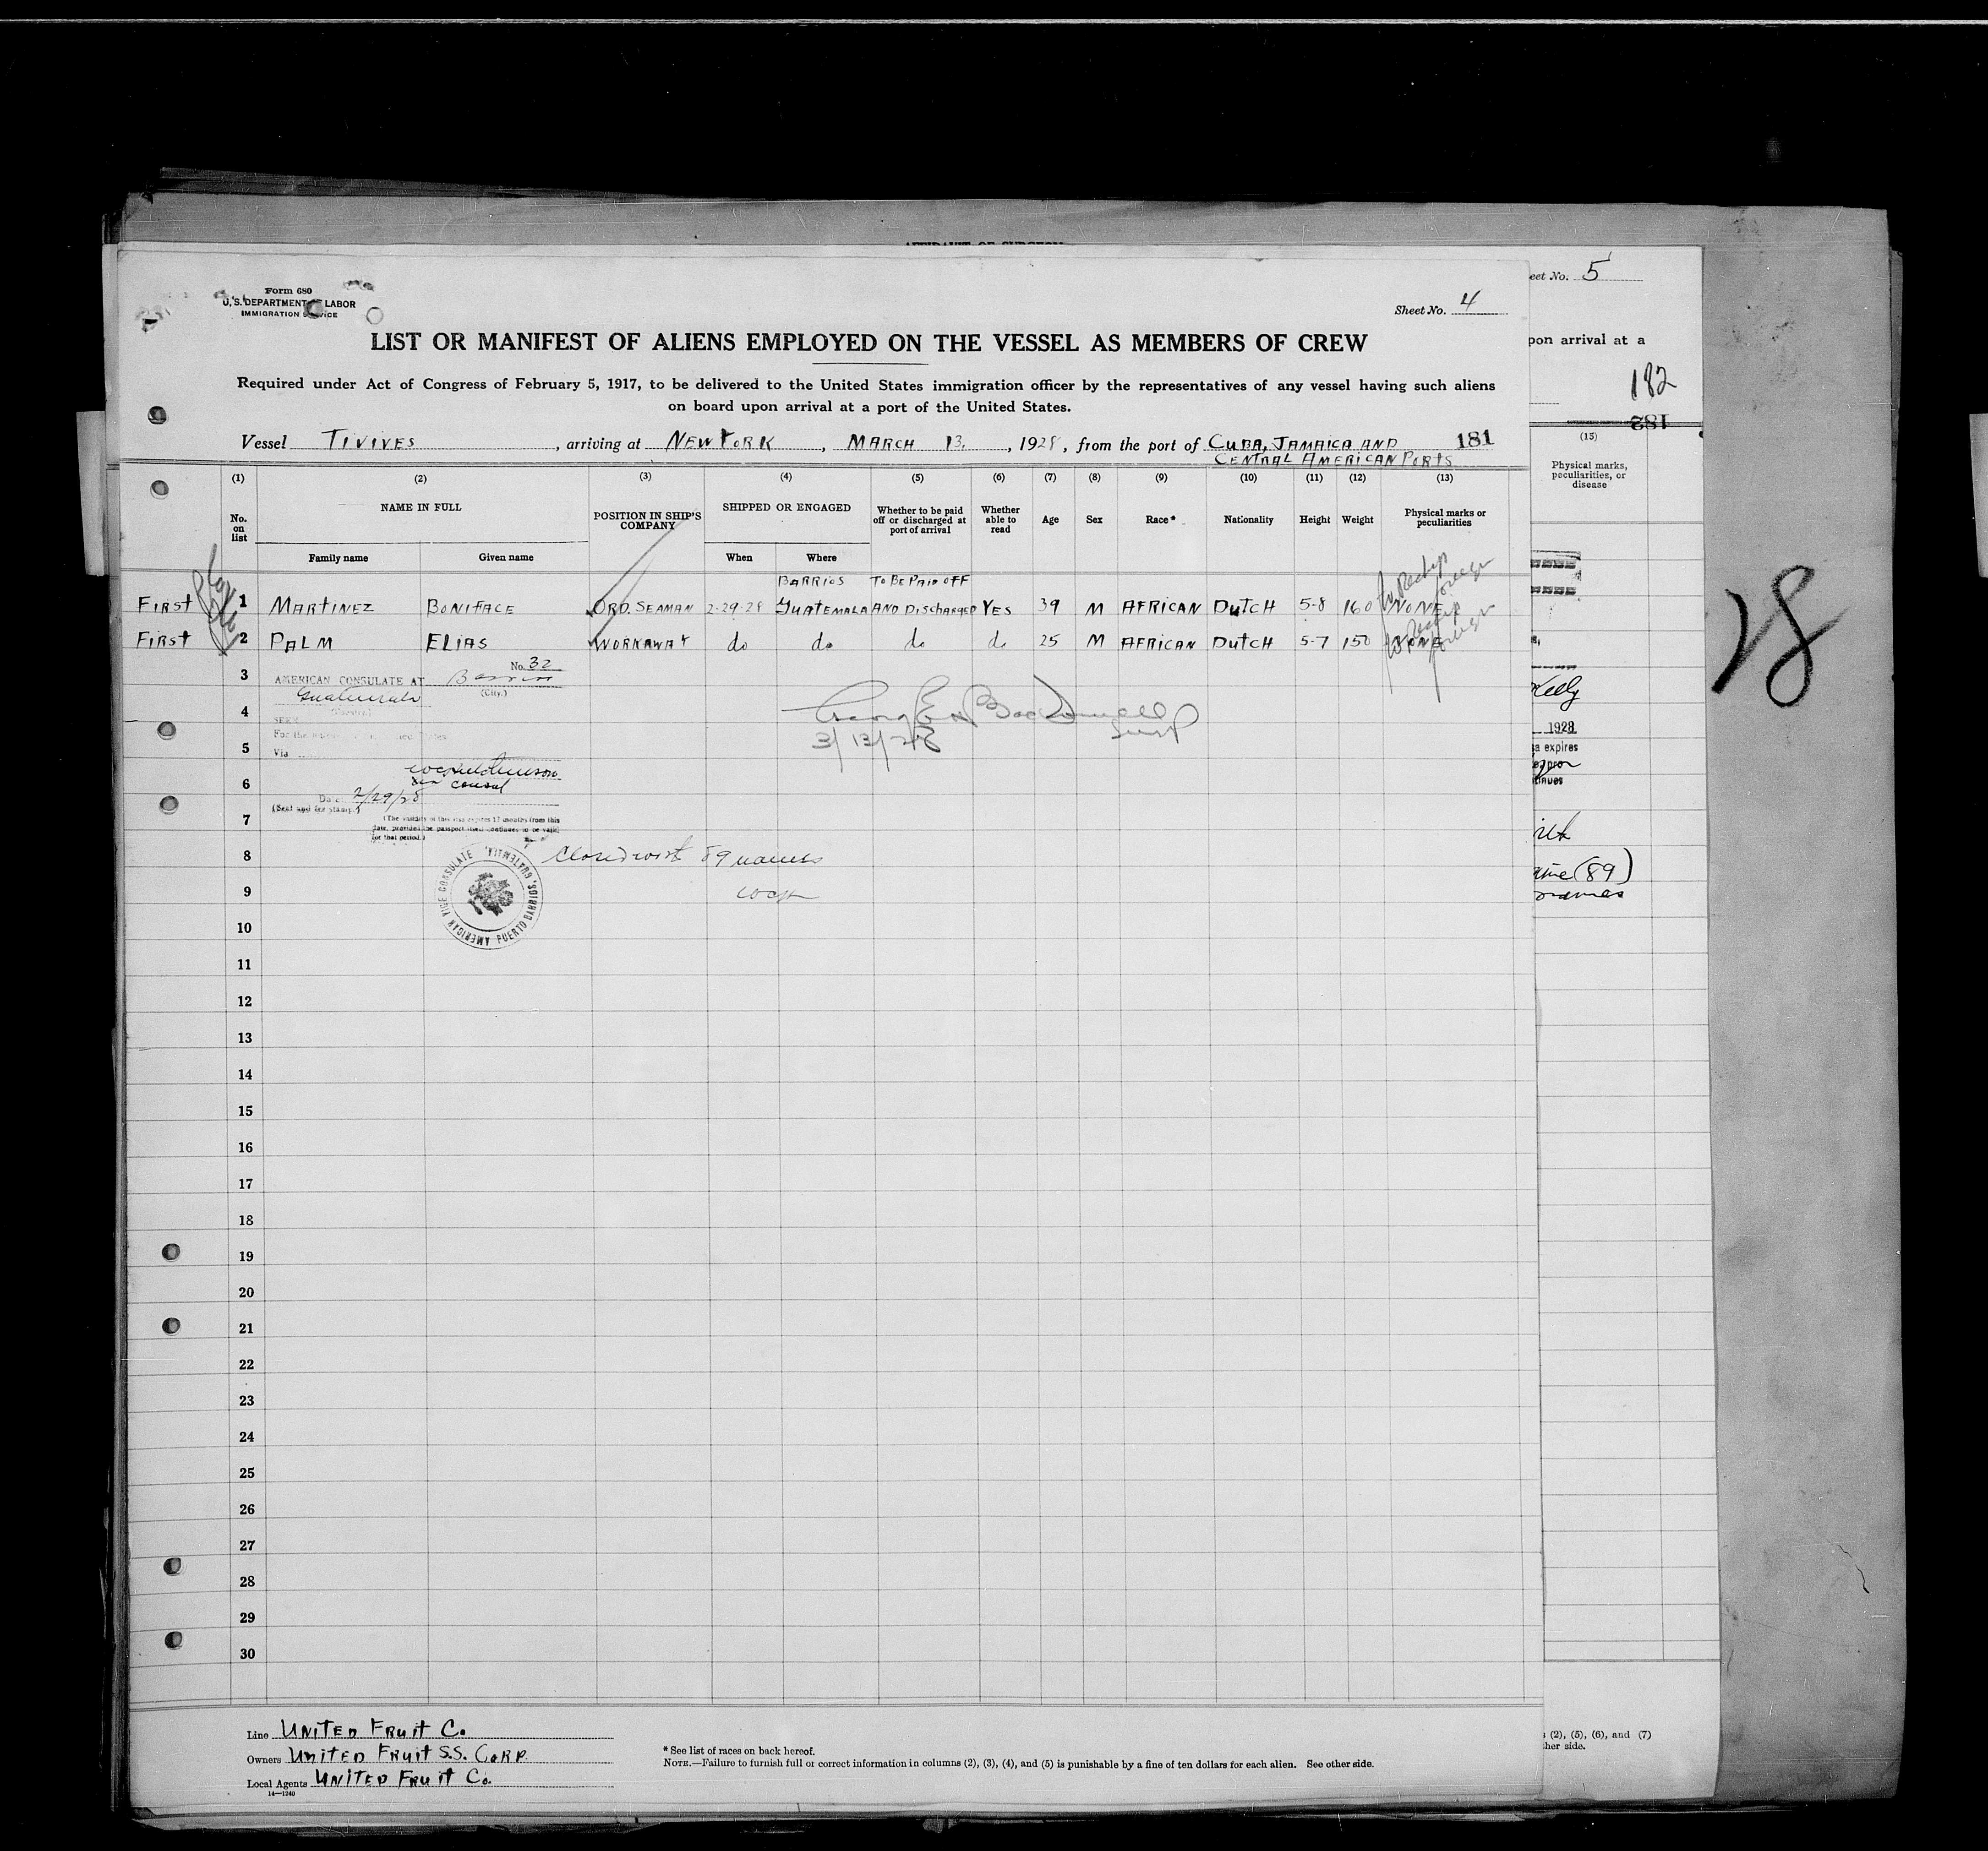 Form 680
U.S. DEPARTMENT OF LABOR
IMMIGRATION SERVICE
Sheet No. 4
LIST OR MANIFEST OF ALIENS EMPLOYED ON THE VESSEL AS MEMBERS OF CREW
Required under Act of Congress of February 5, 1917, to be delivered to the United States immigration officer by the representatives of any vessel having such aliens
on board upon arrival at a port of the United States.
Vessel TIVIVES, arriving at NEW YORK, MARCH 13., 1928, from the port of CUBA, JAMAICA AND 181
CENTRAL AMERICAN PORTS
(1) (2) (3) (4) (5) (6) (7) (8) (9) (10) (11) (12) (13)
No. on list NAME IN FULL POSITION IN SHIP'S COMPANY SHIPPED OR ENGAGED Whether to be paid off or discharged at port of arrival Whether able to read Age Sex Race* Nationality Height Weight Physical marks or peculiarities
Family name Given name When Where
BARRIOS TO BE PAID OFF
FIRST 1 MARTINEZ BONIFACE ORD. SEAMAN 2-29-28 GUATEMALA AND DISCHARGED YES 39 M AFRICAN DUTCH 5-8 160 NONE
FIRST 2 PALM ELIAS WORKAWAY do do do do 25 M AFRICAN DUTCH 5-7 150 NONE
No. 32
3 AMERICAN CONSULATE AT Barrios
(City.)
Guatemala
(Country.)
4 SEEN
For the
5 Via
3/13/28
6 Consul
Date 2/29/28
(Seal and fee stamp.)
7 (The validity of this visa expires 12 months from this
date, provided the passport itself continues to be valid
for that period.)
8 Closed with 89 names
AMERICAN VICE CONSULATE PUERTO BARRIOS, GUATEMALA.
9
10
11
12
13
14
15
16
17
18
19
20
21
22
23
24
25
26
27
28
29
30
Line UNITED FRUIT CO.
Owners UNITED FRUIT S.S. CORP
Local Agents UNITED FRUIT CO.
14—1240
* See list of races on back hereof.
NOTE.—Failure to furnish full or correct information in columns (2), (3), (4), and (5) is punishable by a fine of ten dollars for each alien. See other side.
eet No. 5
pon arrival at a
182
182
(15)
Physical marks,
peculiarities, or
disease
1928
a expires
tinues
(89)
names
(2), (5), (6), and (7)
her side.
28